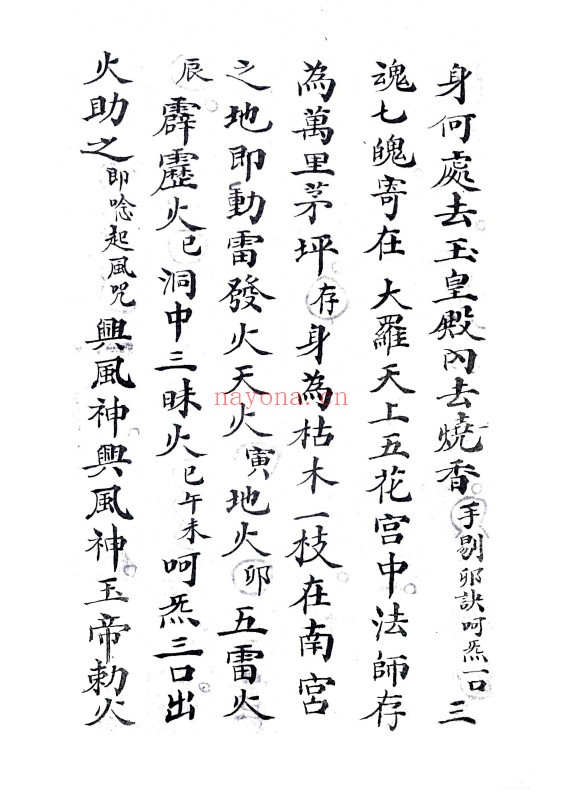 身何處去玉皇殿內去燒香手剔卯訣呵炁一口三
魂七魄寄在大羅天上五花宮中法師存
為萬里茅坪存身為枯木一枝在南宮
之地即動雷發火天火寅地火卯五雷火
辰霹靂火巳洞中三昧火巳午未呵炁三口出
火助之即唸起風咒興風神興風神玉帝勅火
nayona.cn